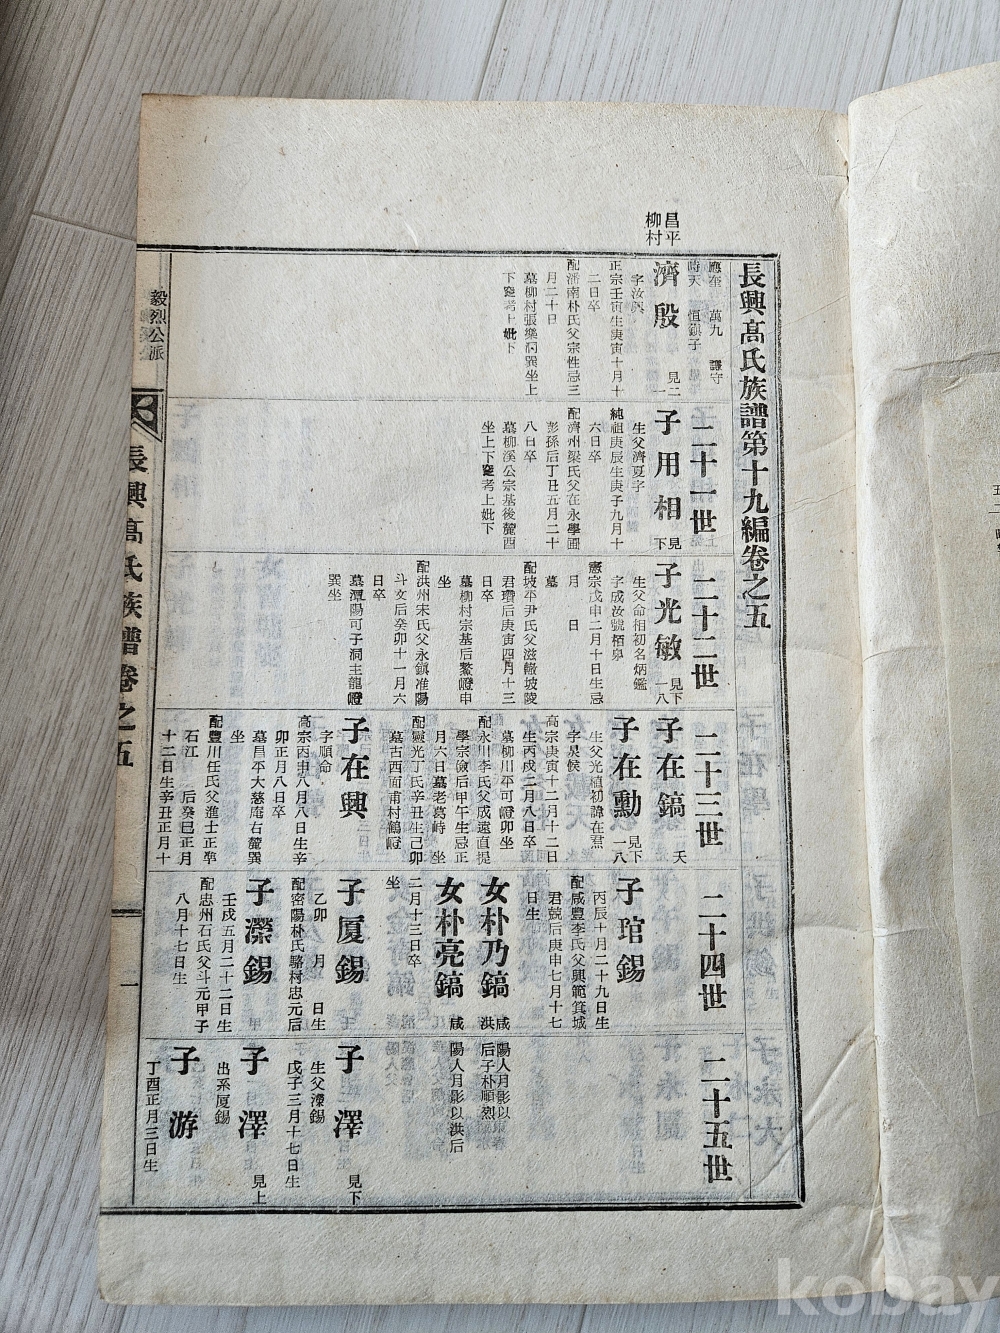 昌平
柳村
長興高氏族譜第十九編卷之五
應奎 萬九 讓守
時天 恒鎮子
濟殷 見二一
字汝興
正宗壬寅生庚寅十月十
二日卒
配濟南朴氏父宗性忌三
月二十日
墓柳村張樂洞巽坐上
下窆考上妣下
二十一世
子用相 見下
生父濟夏字
純祖庚辰生庚子九月十
六日卒
配濟州梁氏父在永學圃
彭孫后丁丑五月二十
八日卒
墓柳溪公宗基後麓酉
坐上下窆考上妣下
二十二世
子光敏 見下一八
生父命相初名炳鑑
字成汝號栢皐
憲宗戊申二月十日生忌
月 日
墓
配坡平尹氏父滋轍坡陵
君瓚后庚寅四月十三
日卒
墓柳村宗基后鰲嶝申
坐
配洪州宋氏父永鎮准陽
斗文后癸卯十一月六
日卒
墓潭陽可子洞主龍嶝
巽坐
二十三世
子在鎬 夭
子在勳 見下一八
生父光植初諱在君
字泉候
高宗庚寅十二月十二日
生丙戌二月八日卒
墓柳川平可嶝卯坐
配永川李氏父成遠直提
學宗儉后甲午生忌正
月六日墓老葛峙 坐
配靈光丁氏辛丑生己卯
墓古西面甫村鶴嶝
子在興
字順命
高宗丙申八月八日生辛
卯正月八日卒
墓昌平大慈庵右麓巽
坐
配豐川任氏父進士正準
石江 后癸巳正月
十二日生辛丑正月十
二十四世
子琯錫
丙辰十月二十九日生
配咸豐李氏父興範箕城
君兢后庚申七月十七
日生
女朴乃鎬 咸
洪
女朴亮鎬 咸
二月十三日卒
坐
子厦錫
乙卯 月 日生
配密陽朴氏父駱村忠元后
子濚錫
壬戌五月二十二日生
配忠州石氏父斗元甲子
八月十七日生
二十五世
陽人月影以
后子朴順烈
陽人月影以洪后
子澤 見下
生父濚錫
戊子三月十七日生
子澤 見上
出系厦錫
子游
丁酉正月三日生
毅烈公派
長興高氏族譜卷之五
一
kobay